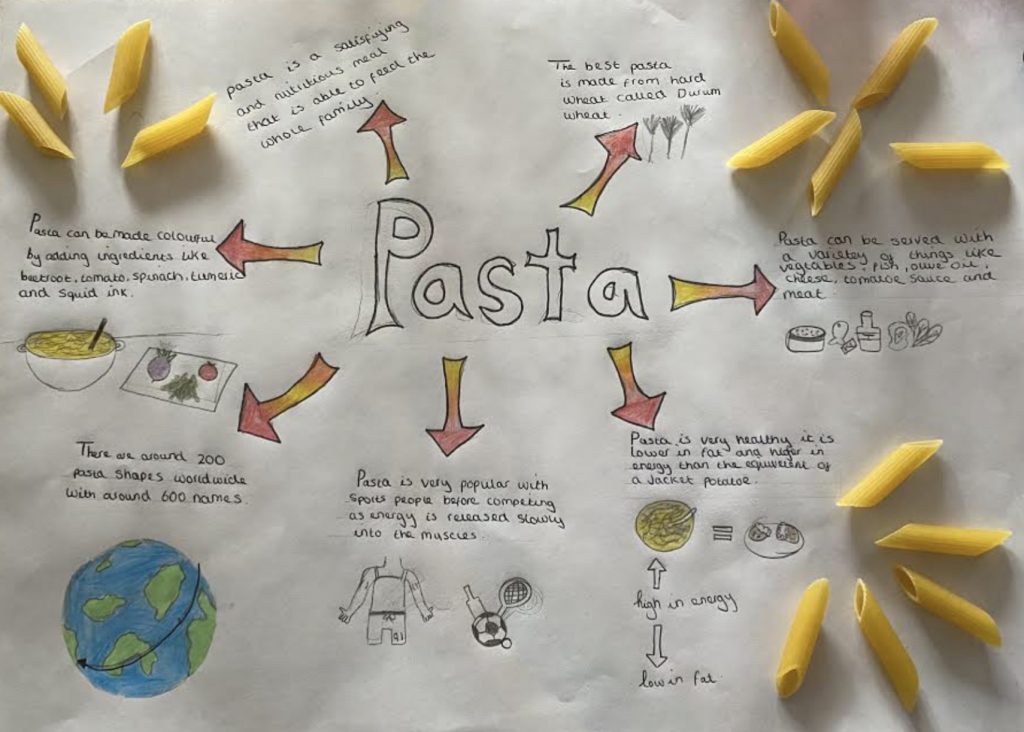 pasta is a satisfying
and nutritious meal
that is able to feed the
whole family.
The best pasta
is made from hard
wheat called Durum
wheat.
Pasta can be made colourful
by adding ingredients like
beetroot, tomato, spinach, tumeric
and squid ink.
Pasta
Pasta can be served with
a variety of things like
vegetables, fish, olive oil,
cheese, tomatoe sauce and
meat.
There are around 200
pasta shapes worldwide
with around 600 names.
Pasta is very popular with
sports people before competing
as energy is released slowly
into the muscles.
Pasta is very healthy it is
lower in fat and higer in
energy than the equivelent of
a Jacket potatoe.
=
high in energy
low in fat.